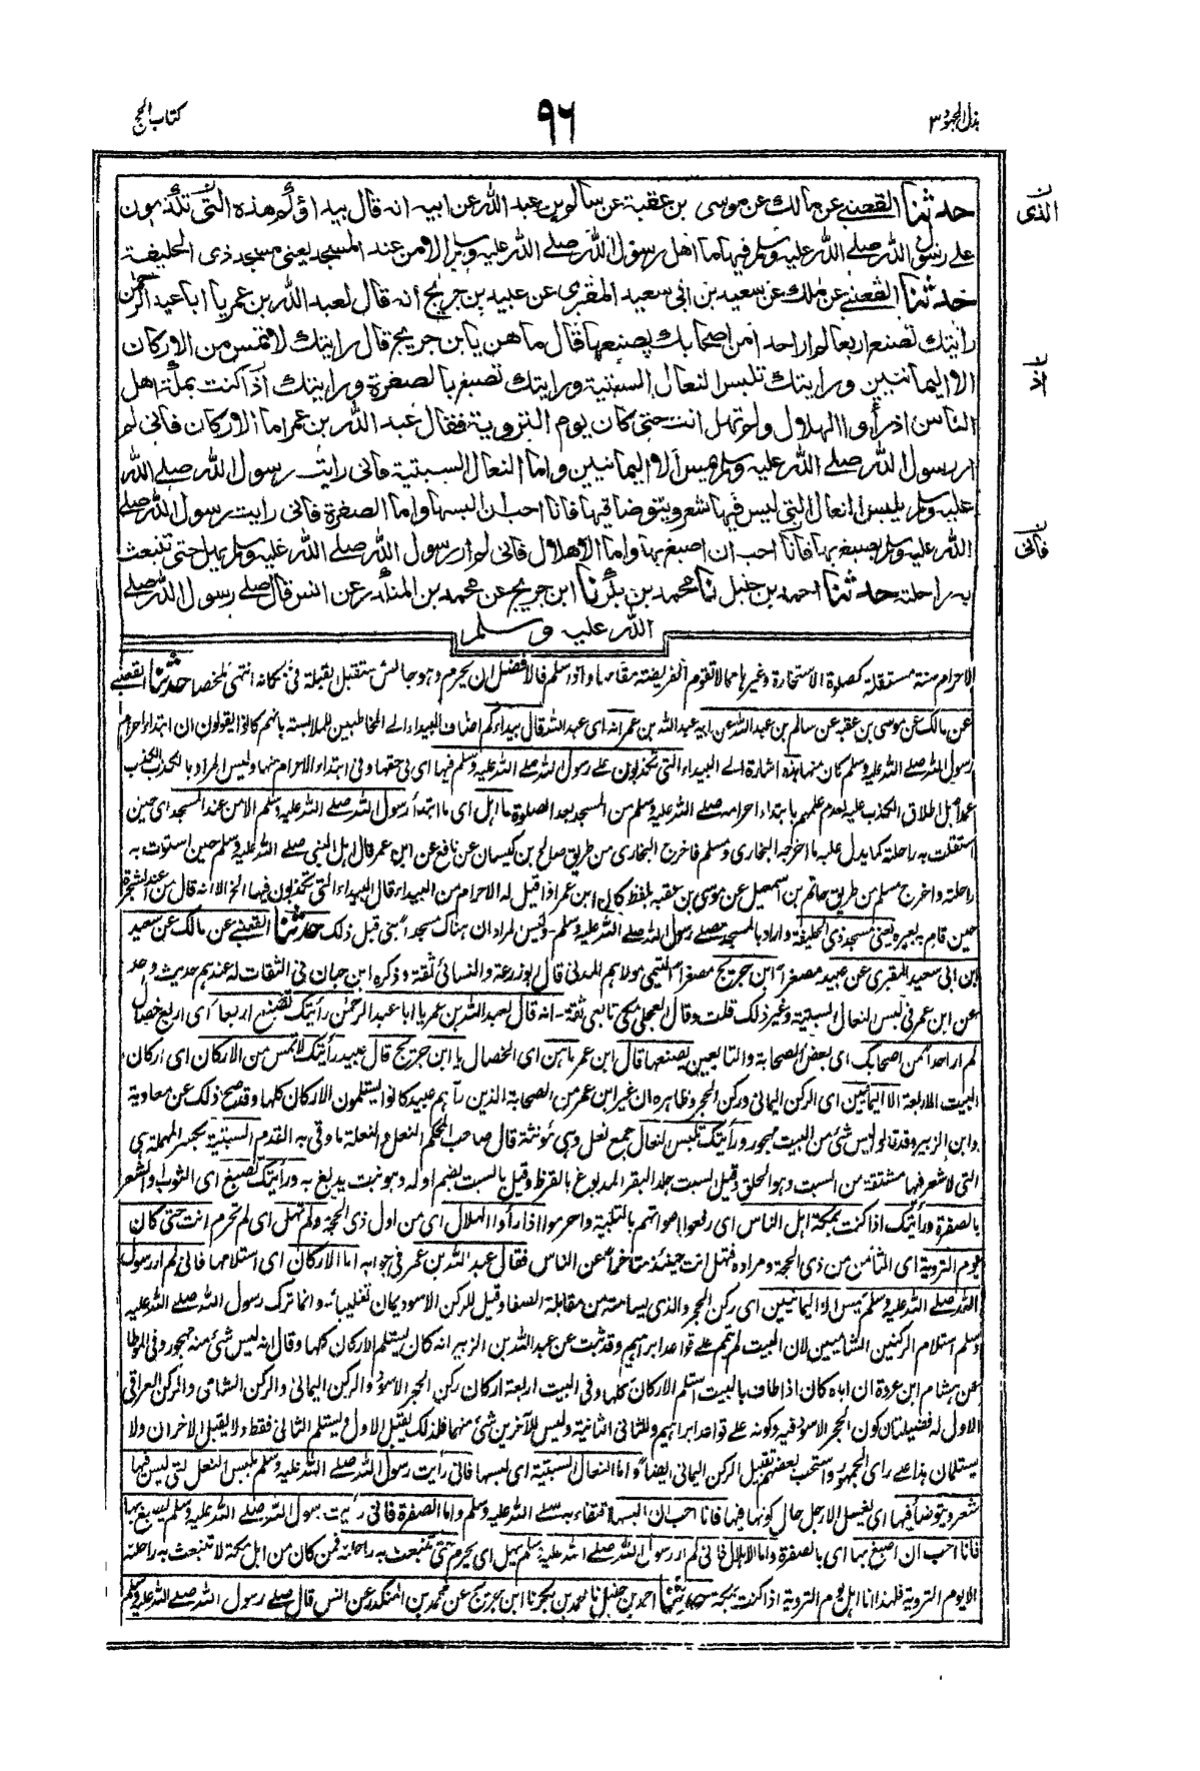 بذل المجهود ٣
٩٦
كتاب الحج
حدثنا القعنبي عن مالك عن موسى بن عقبة عن سالم بن عبد الله عن ابيه انه قال بيداؤكم هذه التي تكذبون
الذي
على رسول الله صلى الله عليه وسلم فيها ما اهل رسول الله صلى الله عليه وسلم الا من عند المسجد يعني مسجد ذي الحليفة
حدثنا القعنبي عن مالك عن سعيد بن ابي سعيد المقبري عن عبيد بن جريج انه قال لعبد الله بن عمر يا ابا عبد الرحمن
رايتك تصنع اربعا لم ار احدا من اصحابك يصنعها قال ما هن يا بن جريج قال رايتك لا تمس من الاركان
الا اليمانيين ورايتك تلبس النعال السبتية ورايتك تصبغ بالصفرة ورايتك اذا كنت بمكة اهل
الناس اذ رأوا الهلال ولم تهل انت حتى كان يوم التروية فقال عبد الله بن عمر اما الاركان فاني لم
ار رسول الله صلى الله عليه وسلم يمس الا اليمانيين واما النعال السبتية فاني رايت رسول الله صلى الله
عليه وسلم يلبس النعال التي ليس فيها شعر ويتوضا فيها فانا احب ان البسها واما الصفرة فاني رايت رسول الله صلى
الله عليه وسلم يصبغ بها فأنا احب ان اصبغ بها واما الاهلال فاني لم ار رسول الله صلى الله عليه وسلم يهل حتى تنبعث
فاني
به راحلته حدثنا احمد بن حنبل نا محمد بن بكر نا ابن جريج عن محمد بن المنكدر عن انس قال صلى رسول الله صلى
الله عليه وسلم
الاحرام سنة مستقلة كصلوة الاستخارة وغيرها مما لا تقوم الفريضة مقامها واذا سلم فالافضل ان يحرم وهو جالس مستقبل القبلة في مكانه انتهى ملخصا حدثنا القعنبي
عن مالك عن موسى بن عقبة عن سالم بن عبد الله عن ابيه عبد الله بن عمر انه اى عبد الله قال بيداءكم اضاف البيداء الى المخاطبين للملابسة بانهم كانوا يقولون ان ابتداء احرام
رسول الله صلى الله عليه وسلم كان منها هذه اشارة الى البيداء التي تكذبون على رسول الله صلى الله عليه وسلم فيها اى في حقها وفي ابتداء الاحرام منها وليس المراد بالكذب الكذب
عمدا بل اطلاق الكذب عليه لعدم علمهم بابتداء احرامه صلى الله عليه وسلم من المسجد بعد الصلوة ما اهل اى ما ابتدأ رسول الله صلى الله عليه وسلم الا من عند المسجد اى حين
استقلت به راحلته كما يدل عليه ما اخرجه البخاري ومسلم فاخرج البخاري من طريق صالح بن كيسان عن نافع عن ابن عمر قال اهل النبي صلى الله عليه وسلم حين استوت به
راحلته واخرج مسلم من طريق حاتم بن اسمعيل عن موسى بن عقبة بلفظ كان ابن عمر اذا قيل له الاحرام من البيداء قال البيداء التي تكذبون فيها الخ الا انه قال من عند الشجرة
حين قام به بعيره يعني مسجد ذي الحليفة واراد بالمسجد مصلى رسول الله صلى الله عليه وسلم وليس المراد ان هناك مسجدا بني قبل ذلك حدثنا القعنبي عن مالك عن سعيد
ابن ابي سعيد المقبري عن عبيد مصغرا ابن جريج مصغرا التيمي مولاهم المدني قال ابو زرعة والنسائي ثقة وذكره ابن حبان في الثقات له عندهم حديث واحد
عن ابن عمر في لبس النعال السبتية وغير ذلك قلت وقال العجلي مكي تابعي ثقة - انه قال لعبد الله بن عمر يا ابا عبد الرحمن رأيتك تصنع اربعا اى اربع خصال
لم ار احدا من اصحابك اى بعض الصحابة والتابعين يصنعها قال ابن عمر ما هن اى الخصال يا ابن جريج قال عبيد رأيتك لا تمس من الاركان اى اركان
البيت الاربعة الا اليمانيين اى الركن اليماني وركن الحجر وظاهره ان غير ابن عمر من الصحابة الذين رآهم عبيد كانوا يستلمون الاركان كلها وقد صح ذلك عن معاوية
وابن الزبير وقد قالوا ليس شئ من البيت مهجورا ورأيتك تلبس النعال جمع نعل وهي مؤنثة قال صاحب المحكم النعل والنعلة ما وقى به القدم السبتية بكسر المهملة هي
التي لا شعر فيها مشتقة من السبت وهو الحلق وقيل السبت جلد البقر المدبوغ بالقرظ وقيل بالسبت بضم اوله وهو نبت يدبغ به ورأيتك تصبغ اى الثوب والشعر
بالصفرة ورأيتك اذا كنت بمكة اهل الناس اى رفعوا اصواتهم بالتلبية واحرموا اذا رأوا الهلال اى من اول ذي الحجة ولم تهل اى لم تحرم انت حتى كان
يوم التروية اى الثامن من ذي الحجة ومراده فتهل انت حينئذ متاخرا عن الناس فقال عبد الله بن عمر في جوابه اما الاركان اى استلامها فاني لم ار رسول
الله صلى الله عليه وسلم يمس الا اليمانيين اى ركن الحجر والذي يسامته من مقابلة الصفا وقيل للركن الاسود يمان تغليبا - وانما ترك رسول الله صلى الله عليه
وسلم استلام الركنين الشاميين لان البيت لم يتم على قواعد ابراهيم وقد ثبت عن عبد الله بن الزبير انه كان يستلم الاركان كلها وقال انه ليس شئ منه مهجورا وفي الموطا
عن هشام ابن عروة ان اباه كان اذا طاف بالبيت استلم الاركان كلها وفي البيت اربعة اركان ركن الحجر الاسود والركن اليماني والركن الشامي والركن العراقي
الاول له فضيلتان كون الحجر الاسود فيه وكونه على قواعد ابراهيم وللثاني الثانية وليس للآخرين شئ منهما فلذلك يقبل الاول ويستلم الثاني فقط ولا يقبل الاخران ولا
يستلمان هذا على راى الجمهور واستحب بعضهم تقبيل الركن اليماني ايضا واما النعال السبتية اى لبسها فاني رأيت رسول الله صلى الله عليه وسلم يلبس النعل التي ليس فيها
شعر ويتوضأ فيها اى يغسل الارجل حال كونها فيها فانا احب ان البسها اقتفاء به صلى الله عليه وسلم واما الصفرة فاني رأيت رسول الله صلى الله عليه وسلم يصبغ بها
فانا احب ان اصبغ بها اى بالصفرة واما الاهلال فاني لم ار رسول الله صلى الله عليه وسلم يهل اى يحرم حتى تنبعث به راحلته فمن كان من اهل مكة لا تنبعث به راحلته
الا يوم التروية فلهذا انا اهل يوم التروية اذا كنت بمكة حدثنا احمد بن حنبل نا محمد بن بكر نا ابن جريج عن محمد بن المنكدر عن انس قال صلى رسول الله صلى الله عليه وسلم